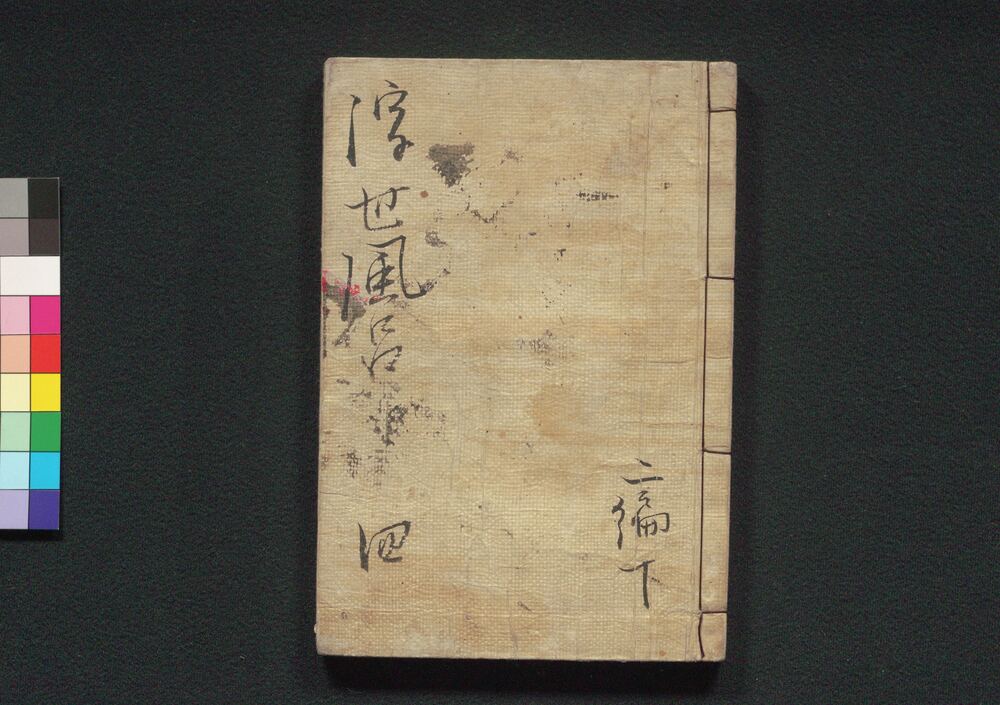 浮世風呂 四
二編下